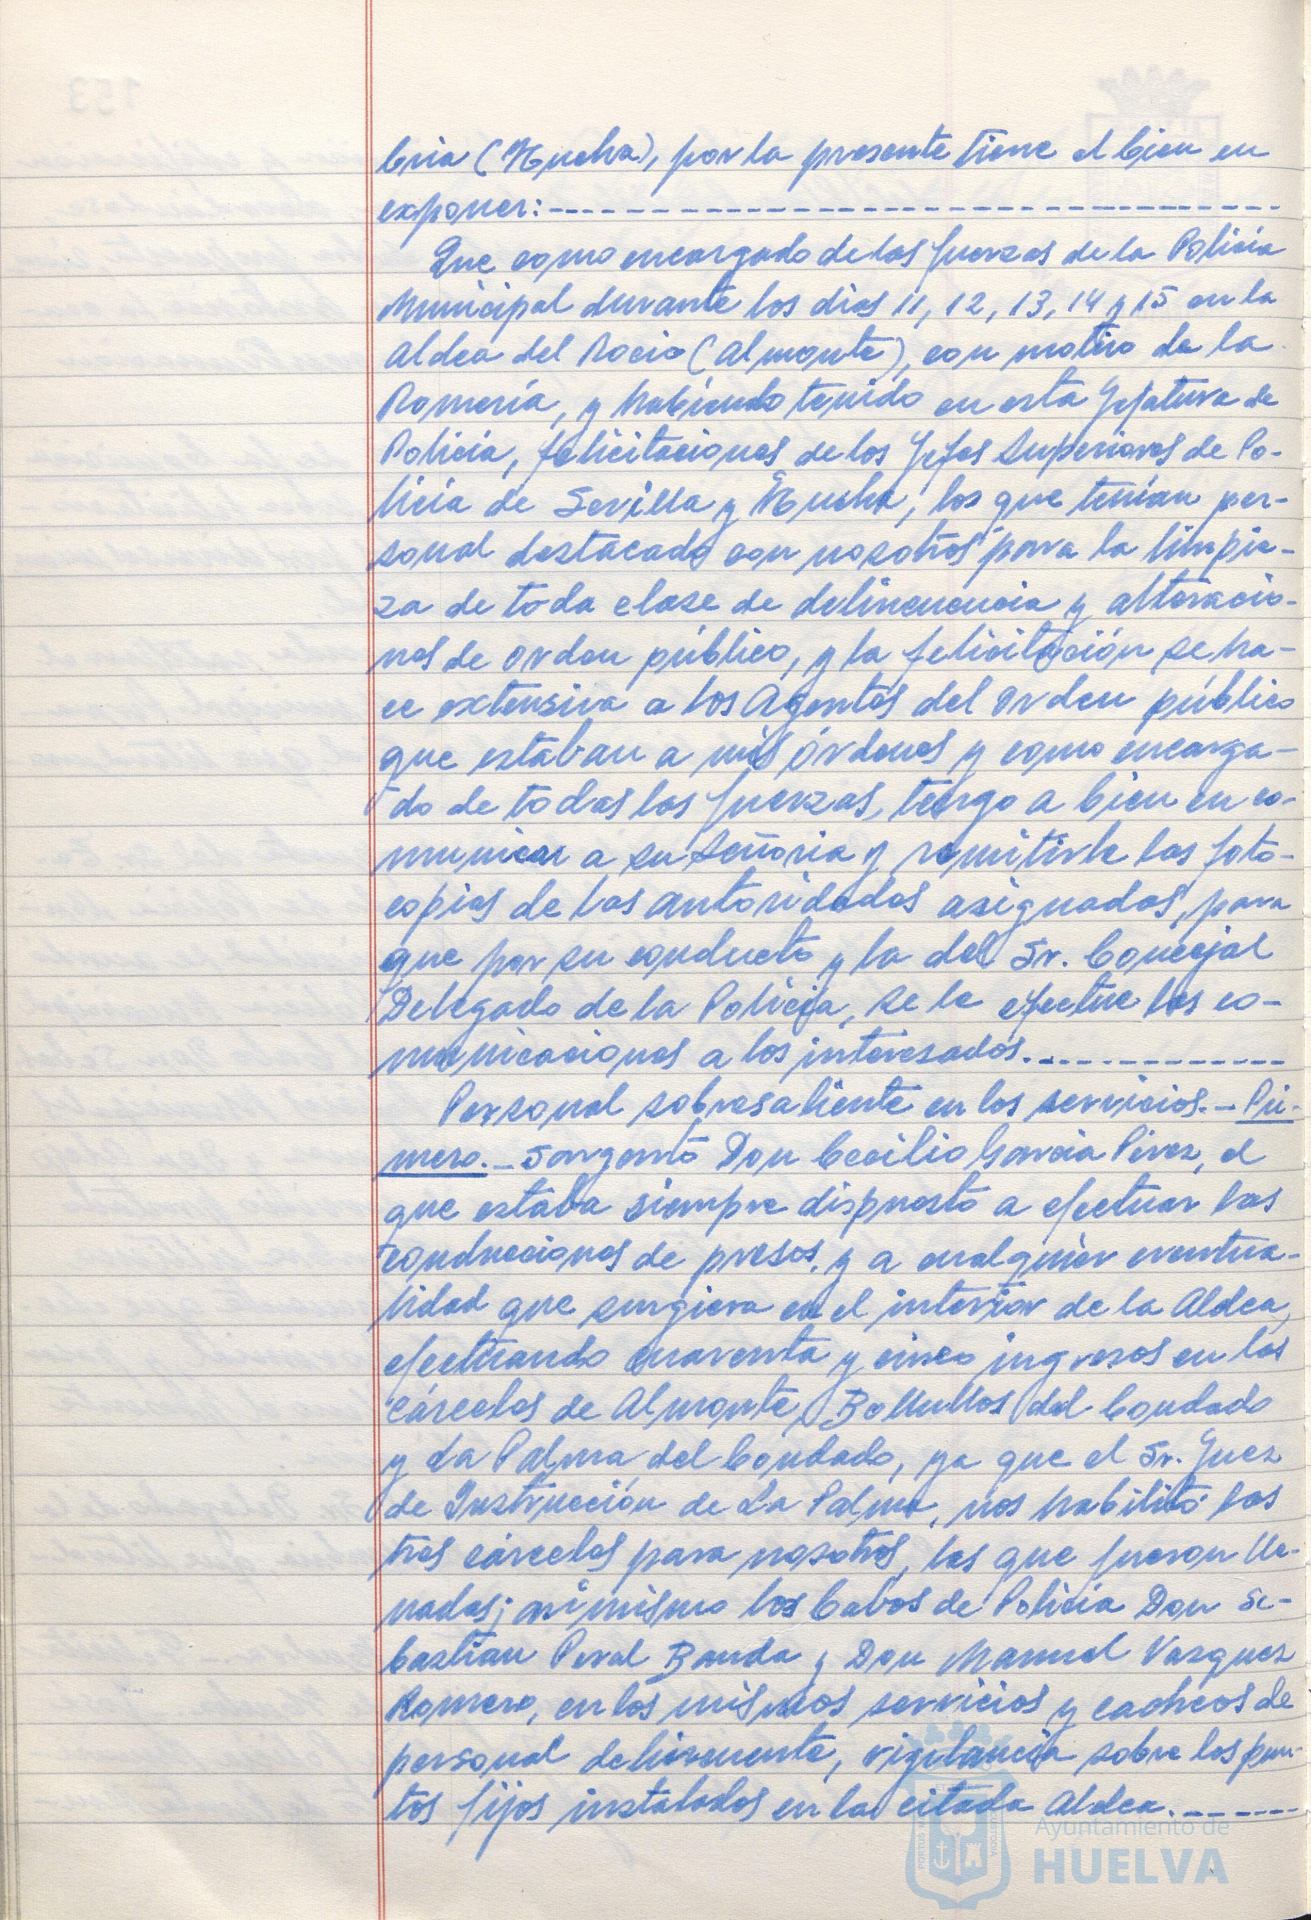 bria (Huelva), por la presente tiene el bien en
exponer:
Que como encargado de las fuerzas de la Policia
Municipal durante los dias 11, 12, 13, 14 y 15 en la
Aldea del Rocio (Almonte), con motivo de la
Romería, y habiendo tenido en esta Jefatura de
Policía, felicitaciones de los Jefes Superiores de Po-
licia de Sevilla y Huelva, los que tenían per-
sonal destacado con nosotros para la limpie-
za de toda clase de delincuencia y alteracio-
nes de orden público, y la felicitación se ha-
ce extensiva a los Agentes del orden público
que estaban a mis órdenes y como encarga-
do de todas las fuerzas, tengo a bien en co-
municar a su Señoria y remitirle las foto-
copias de las autoridades asignadas, para
que por su conducto y la del Sr. Concejal
Delegado de la Policia, se le efectue las co-
municaciones a los interesados.
Personal sobresaliente en los servicios.- Pri-
mero.- Sargento Don Cecilio Garcia Pérez, el
que estaba siempre dispuesto a efectuar las
conducciones de presos, y a cualquier eventua-
lidad que surgiera en el interior de la Aldea,
efectuando cuarenta y cinco ingresos en las
cárceles de Almonte, Bollullos del Condado
y La Palma del Condado, ya que el Sr. Juez
de Instrucción de La Palma, nos habilitó las
tres cárceles para nosotros, las que fueron lle-
nadas; asimismo los Cabos de Policia Don Se-
bastian Peral Banda y Don Manuel Vazquez
Romero, en los mismos servicios y cacheos de
personal delincuente, vigilancia sobre los pun-
tos fijos instalados en la citada Aldea.
Ayuntamiento de
HUELVA